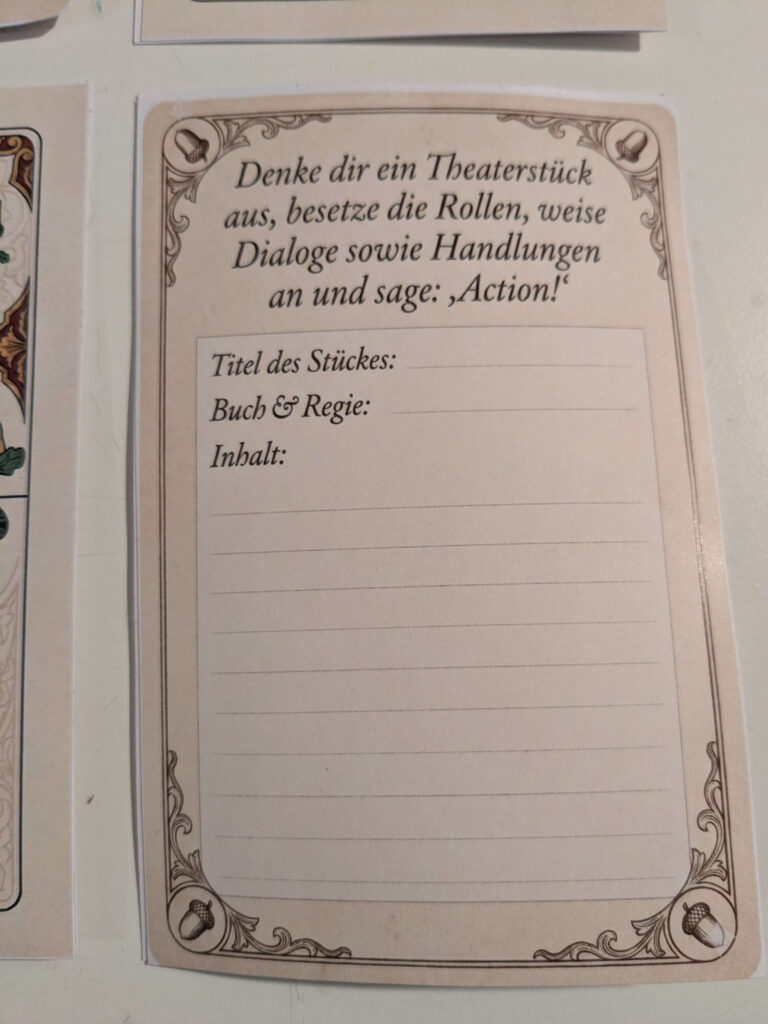 Denke dir ein Theaterstück
aus, besetze die Rollen, weise
Dialoge sowie Handlungen
an und sage: ‚Action!‘
Titel des Stückes:
Buch & Regie:
Inhalt: